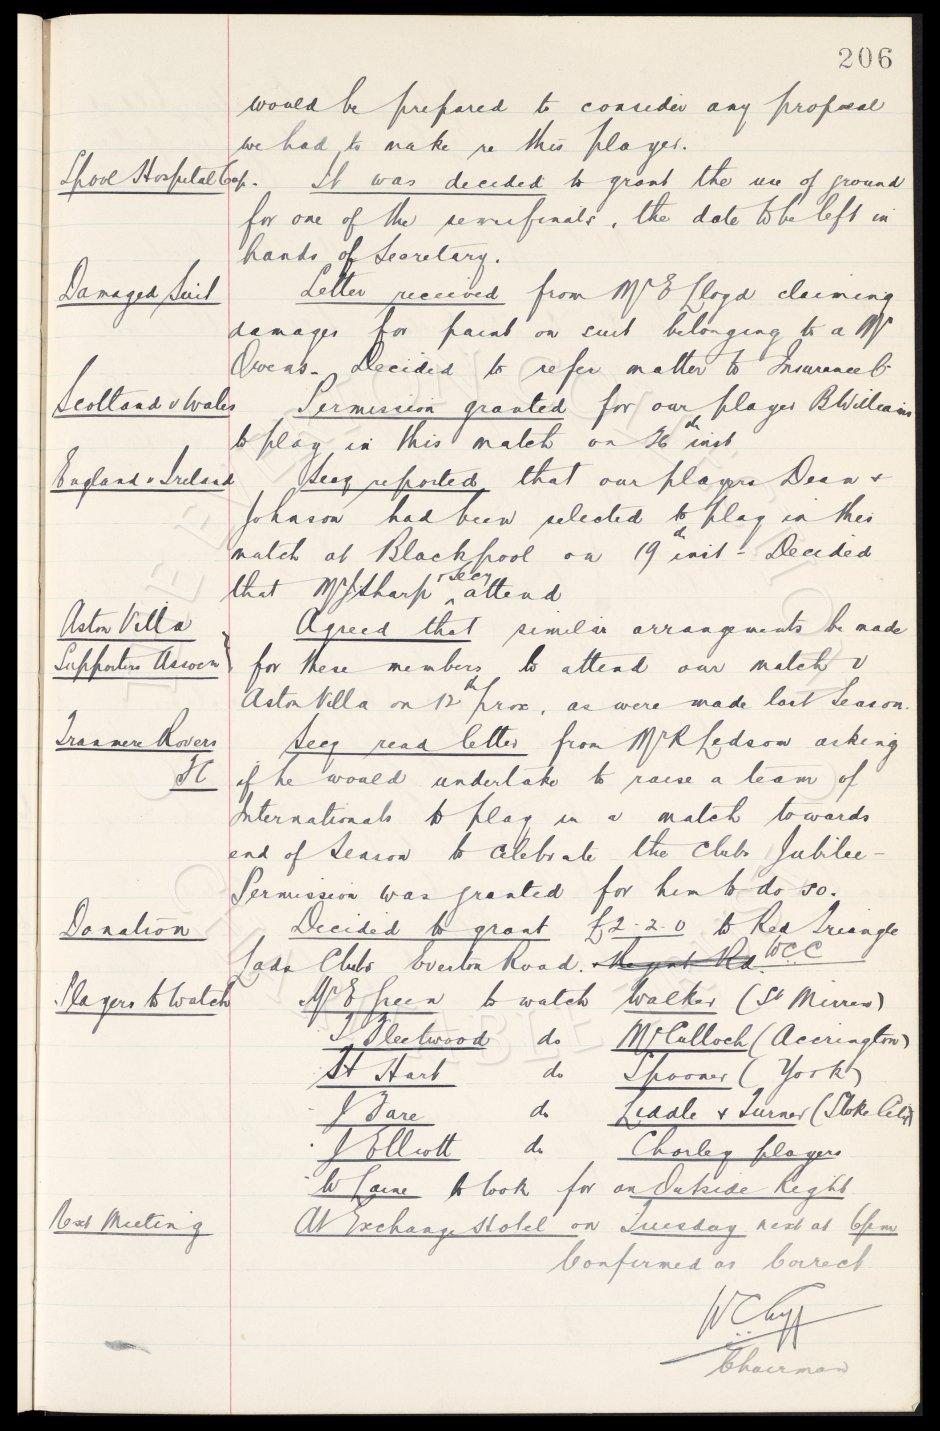 206
would be prepared to consider any proposal
we had to make re this player.
Lpool Hospital Cup. It was decided to grant the use of ground
for one of the semifinals, the date to be left in
hands of Secretary.
Damaged Suit Letter received from Mr E Lloyd claiming
damages for paint on suit belonging to a Mr
Owens - Decided to refer matter to Insurance Co
Scotland v Wales Permission granted for our player B Williams
to play in this match on 26th inst
England v Ireland Secy reported that our players Dean &
Johnson had been selected to play in this
match at Blackpool on 19th inst - Decided
that Mr J Sharp & Secy attend
Aston Villa Agreed that similar arrangements be made
Supporters Assocn for these members to attend our match v
Aston Villa on 12th prox, as were made last Season.
Tranmere Rovers Secy read letter from Mr R Ledsom asking
FC if he would undertake to raise a team of
Internationals to play in a match towards
end of Season to celebrate the Clubs Jubilee -
Permission was granted for him to do so.
Donation Decided to grant £2-2-0 to Red Triangle
Lads Club Everton Road. Regent Rd. WCC
Players to Watch Mr E Green to watch Walker (St Mirren)
T Fleetwood do McCulloch (Accrington)
H Hart do Spooner (York)
J Fare do Liddle & Turner (Stoke City)
J Elliott do Chorley players
W Caine to look for an Outside Right
Next Meeting At Exchange Hotel on Tuesday next at 6pm
Confirmed as Correct
W C Cuff
Chairman